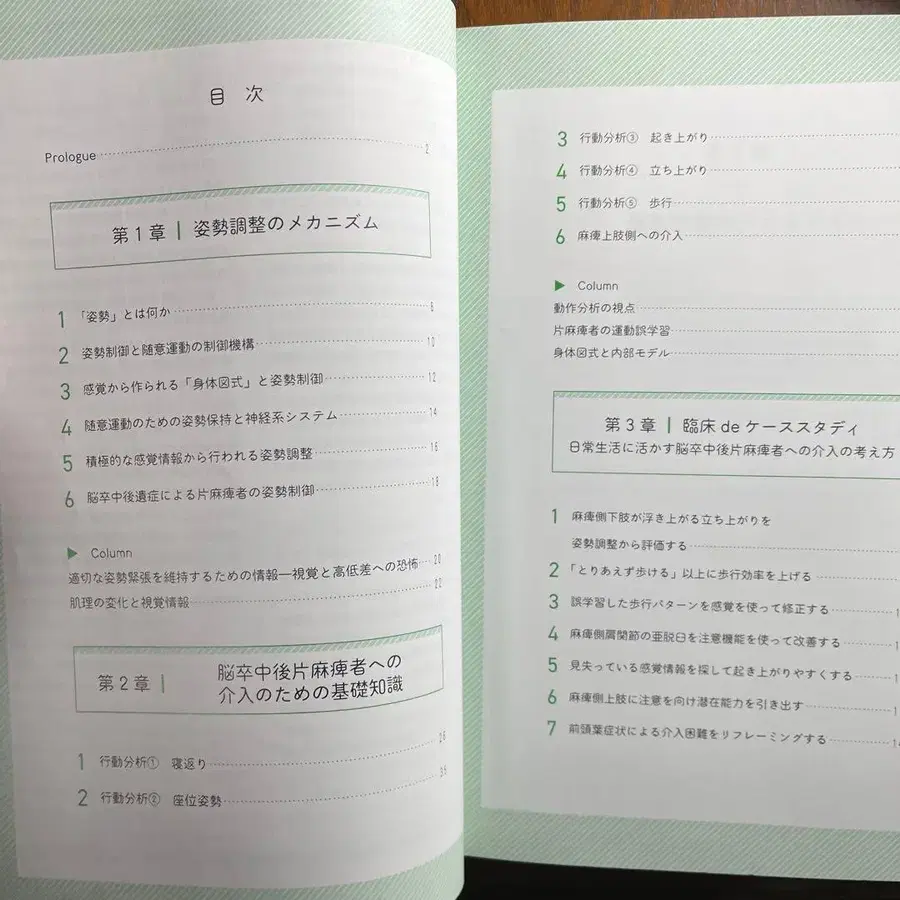 目 次
Prologue 2
第1章 姿勢調整のメカニズム
1 「姿勢」とは何か 8
2 姿勢制御と随意運動の制御機構 10
3 感覚から作られる「身体図式」と姿勢制御 12
4 随意運動のための姿勢保持と神経系システム 14
5 積極的な感覚情報から行われる姿勢調整 16
6 脳卒中後遺症による片麻痺者の姿勢制御 18
▶ Column
適切な姿勢緊張を維持するための情報―視覚と高低差への恐怖 20
肌理の変化と視覚情報 22
第2章 脳卒中後片麻痺者への
介入のための基礎知識
1 行動分析① 寝返り 26
2 行動分析② 座位姿勢 35
3 行動分析③ 起き上がり
4 行動分析④ 立ち上がり
5 行動分析⑤ 歩行
6 麻痺上肢側への介入
▶ Column
動作分析の視点
片麻痺者の運動誤学習
身体図式と内部モデル
第3章 臨床deケーススタディ
日常生活に活かす脳卒中後片麻痺者への介入の考え方
1 麻痺側下肢が浮き上がる立ち上がりを
姿勢調整から評価する
2 「とりあえず歩ける」以上に歩行効率を上げる
3 誤学習した歩行パターンを感覚を使って修正する
4 麻痺側肩関節の亜脱臼を注意機能を使って改善する
5 見失っている感覚情報を探して起き上がりやすくする
6 麻痺側上肢に注意を向け潜在能力を引き出す
7 前頭葉症状による介入困難をリフレーミングする